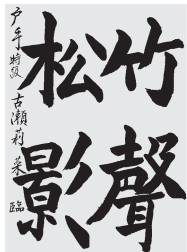 竹聲
松影
戸手特級 古瀬莉菜 臨